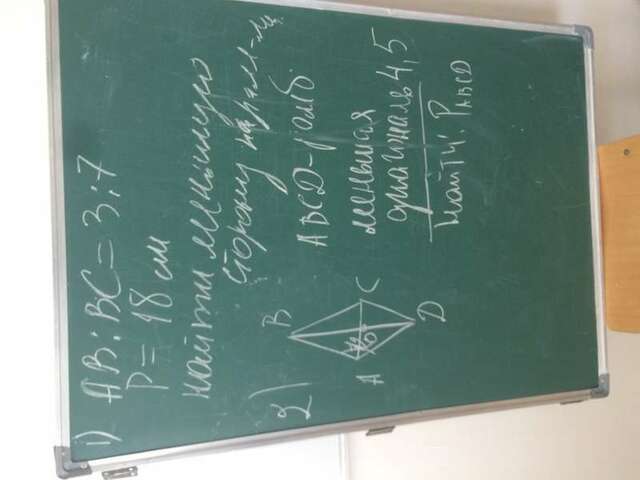 1) AB:BC=3:7
P=18 см
найти меньшую
сторону паралл-ма.
2)
B
A
C
D
ABCD-ромб
меньшая
диагональ 4,5
Найти: P ABCD